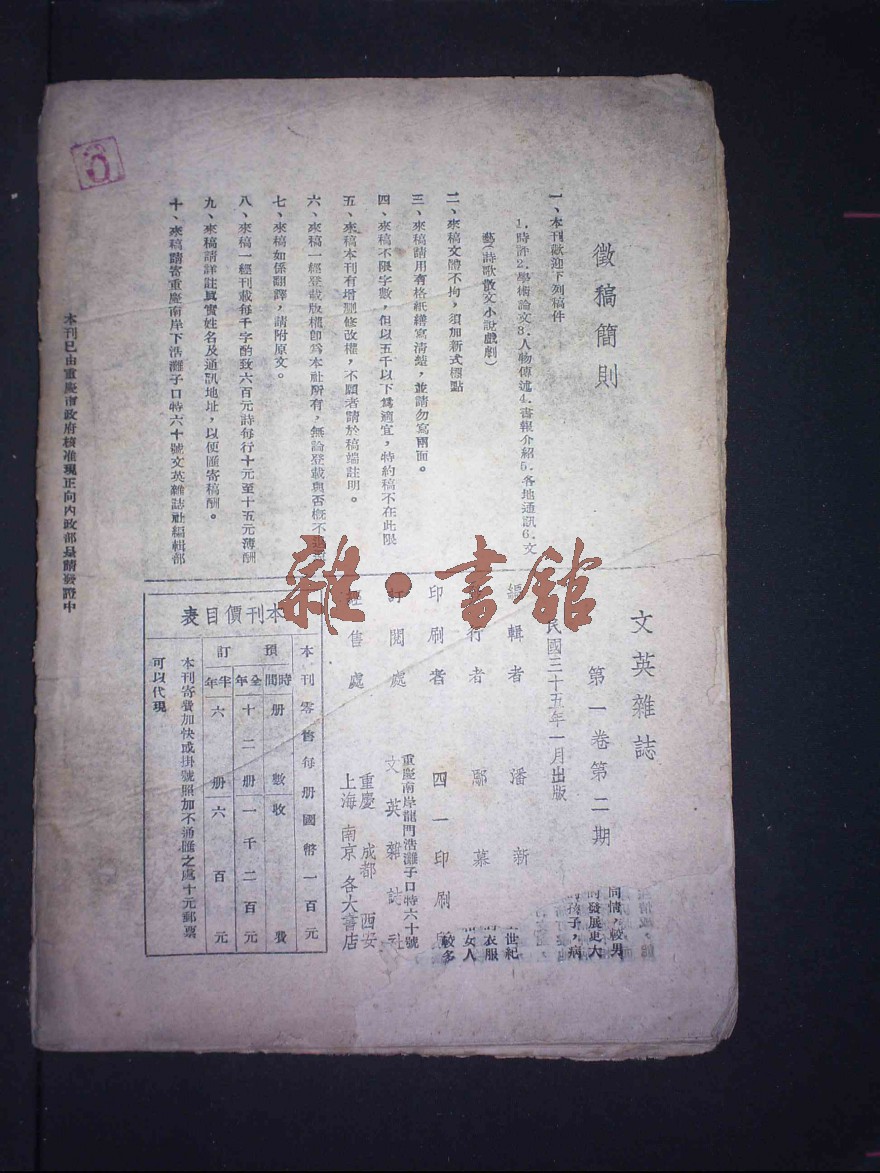 徵稿簡則
一、本刊歡迎下列稿件
1.時評2.學術論文3.人物傳述4.書報介紹5.各地通訊6.文
藝(詩歌散文小說戲劇)
二、來稿文體不拘，須加新式標點
三、來稿請用有格紙繕寫清楚，並請勿寫兩面。
四、來稿不限字數，但以五千以下為適宜，特約稿不在此限
五、來稿本刊有增刪修改權，不願者請於稿端註明。
六、來稿一經登載版權即為本社所有，無論登載與否概不
七、來稿如係翻譯，請附原文。
八、來稿一經刊載每千字酌致六百元詩每行十元至十五元薄酬
九、來稿請詳註真實姓名及通訊地址，以便匯寄稿酬。
十、來稿請寄重慶南岸下浩灘子口特六十號文英雜誌社編輯部
本刊已由重慶市政府核准現正向內政部呈請登證中
文英雜誌
第一卷第二期
民國三十五年一月出版
編輯者 潘新
行者 鄢慕
印刷者 四一印刷
訂閱處 文英雜誌社
重慶南岸龍門浩灘子口特六十號
經售處 重慶 成都 西安
上海 南京 各大書店
本刊價目表
本刊零售每册國幣一百元
預訂
時間 册數 收費
全年 十二册 一千二百元
半年 六册 六百元
本刊寄費加快或掛號照加不通匯之處十元郵票
可以代現
同情，較男
的發展更大
孩子，病
世紀
衣服
女人
較多
雜·書館